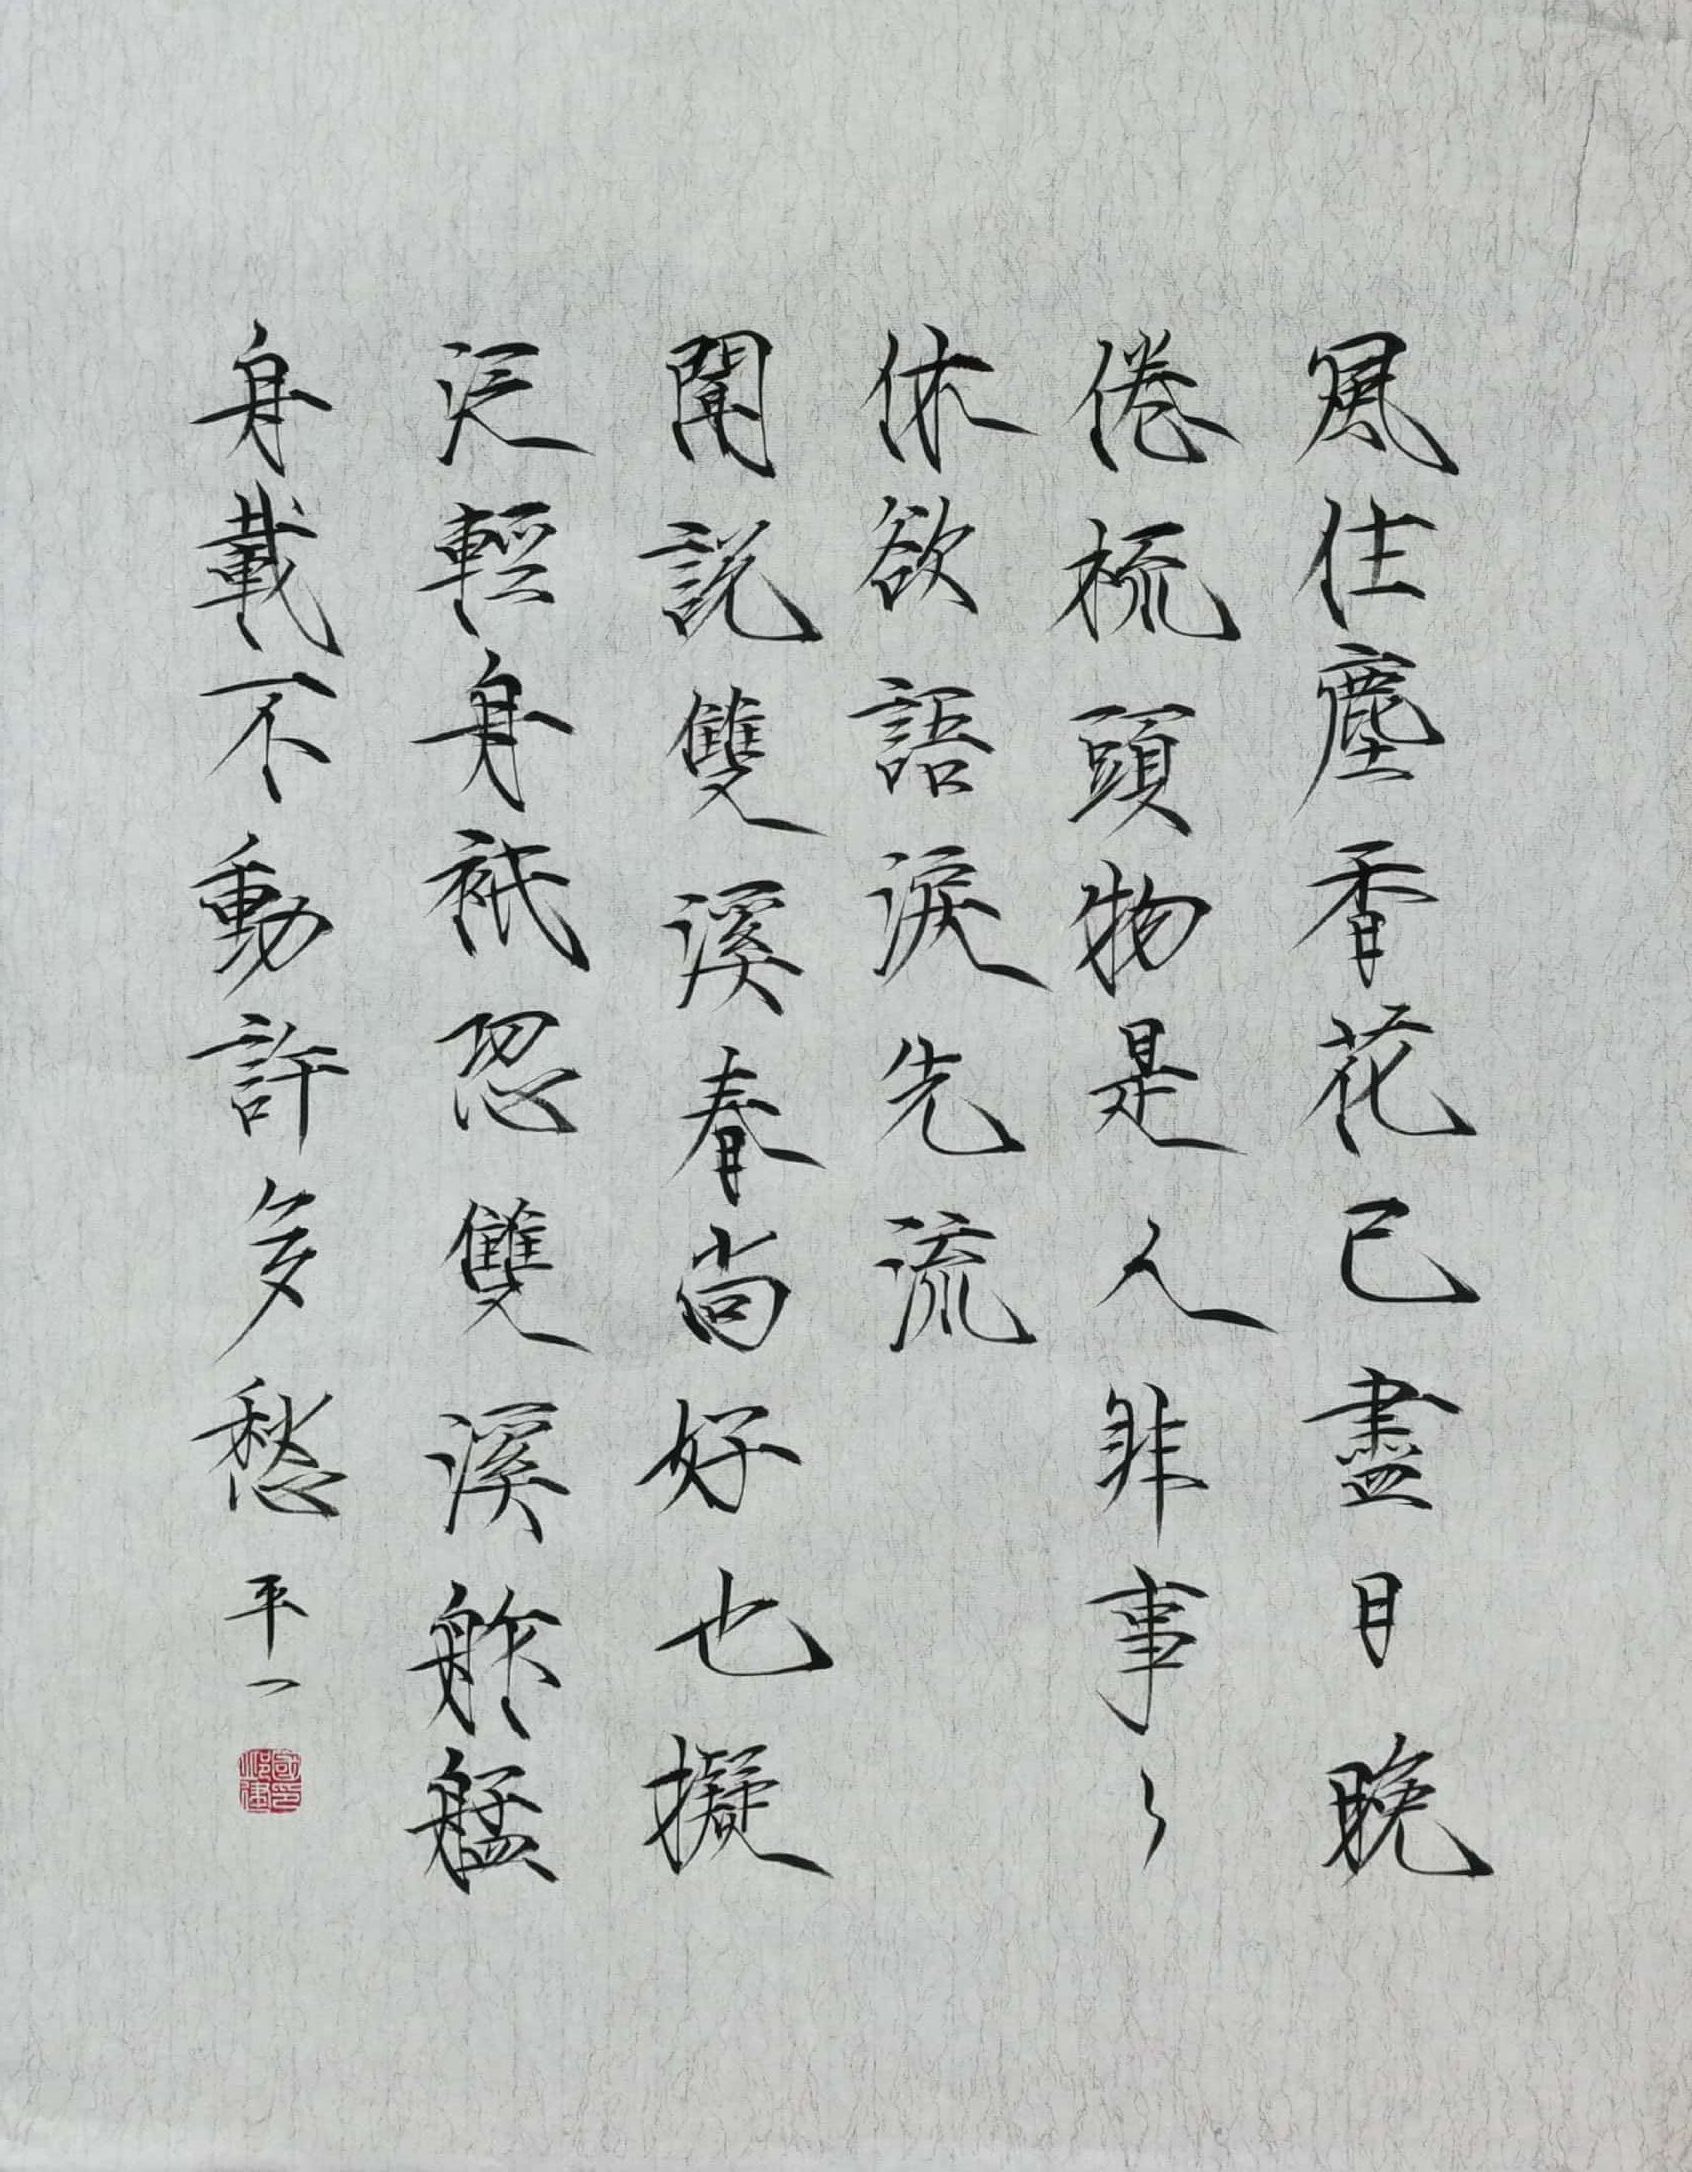 風住塵香花已盡日晚
倦梳頭物是人非事々
休欲語淚先流
聞說雙溪春尚好也擬
泛輕舟祇恐雙溪舴艋
舟載不動許多愁
平一